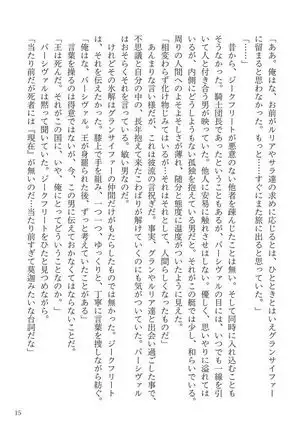 「ああ。俺は、お前がルリアやサラ達の求めに応じるとは、ひとときとはいえグランサイファー
に留まると思わなかった。もっと……すぐにまた旅に出ると思っていた」
「……」
昔から、ジークフリートが悪意のない他者を疎んじたことは無い。そして同時に、入れ込むことも
そうなかった。騎士団長であったということもあるが、パーシヴァルの目には、いつでも一線を引
いて人と付き合う男が映っていた。他人に安易に触れさせはしない。優しく、思いやりに溢れては
いるが、内側にどうしようもない孤独を抱えている男だと。それがこの艇では、少し、和らいでいる。
周りの人間へのよそよそしさが薄れ、随分と態度に温度がついたように見えた。
「相変わらず化け物じみてはいるが……それはそれとして、人間らしくなったな」
あんまりな言い様だが、これは彼流の言祝ぎだ。事実、グランやルリア達と出会い過ごす事で、
不思議と自分の中の、長年抱えて来たこわばりが解けていくのにも気が付いていた。パーシヴァル
はおそらくそれを言っている。敏い男なのだ。
けれどその氷解はグランサイファーの仲間だけがもたらしたものでは無い。ジークフリート
は、それを伝えたかった。膝上で手を組み、一つ一つ、ゆっくりと、丁寧に言葉を捜しながら紡ぐ。
「俺はな、パーシヴァル。王が身罷られた後、ずっと考えていたことがある」
言葉を操るのは得意ではないが、今、この男に伝えておかなくてはならないことだ。
「王は死んだ。それがこの国に、いや、俺にとってどういうことなのか」
パーシヴァルは黙って聞いていた。ジークフリートをひたと見つめながら。
「当たり前だが死者には『現在』が無いのだ……当たり前すぎて莫迦みたいな台詞だな」
15